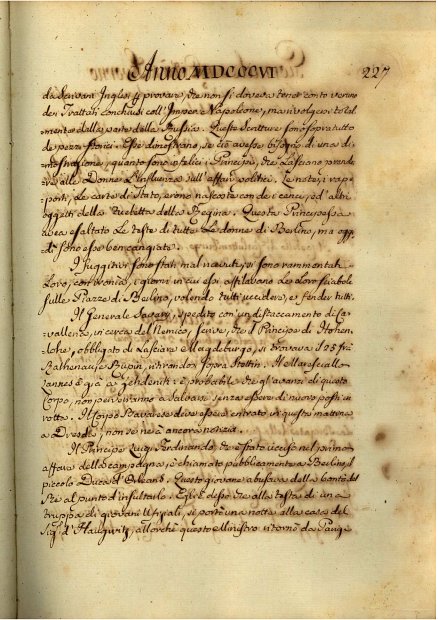 Anno MDCCCVI
227
da Scrivani Inglesi p provare, che non si doveva tener conto veruno
dei Trattati conchiusi coll' Imper. Napoleone, ma rivolgersi total
mente dalla parte della Russia. Queste Scritture sono sopra tutto
de pezzi storici. Esse dimostrano, se ciò avesse bisogno di una di
mostrazione, quanto sono infelici i Principi, che lasciano prende
re alle Donne l'influenza sull' affari politici. Le note, i rap
porti, le carte di Stato, erano nascoste con de' cenci, ed altri
oggetti della Toeletta della Regina. Questa Principessa
avea esaltato le teste di tutte le donne di Berlino, ma oggi
di sono esse ben cangiate.
I fuggitivi sono stati mal ricevuti, vi sono rammontati
Loro, con ironia, i giorni in cui essi affilavano le loro sciabole
sulle Piazze di Berlino, volendo tutti uccidere, e fender tutti.
Il Generale Savary, spedito con un distaccamento di Ca-
valleria, in cerca del Nemico, scrive, che il Principe di Hohen-
lohe, obbligato di lasciare Magdeburgo, si trovava il 25 fra
Rathenau, e Rupin, ritirandosi sopra Stettin. Il Maresciallo
Lannes è già a Zehdenik: è probabile che gl' avanzi di questo
Corpo, non perverranno a salvarsi senza essere di nuovo posti in
rotta. Il Corpo Bavarese dev' essere entrato in questa mattina
a Dresda, non se ne à ancora notizia.
Il Principe Luigi Ferdinando, che è stato ucciso nel primo
affare della campagna, è chiamato pubblicamente a Berlino, il
piccolo Duca d' Orleans. Questo giovane abusava della bontà del
Rè al punto d' insultarlo. Egli è desso che alla testa di una
truppa di giovani Ufiziali, si portò una notte alla casa del
Sig. d' Haugwitz, allorchè questo Ministro ritornò da Parigi